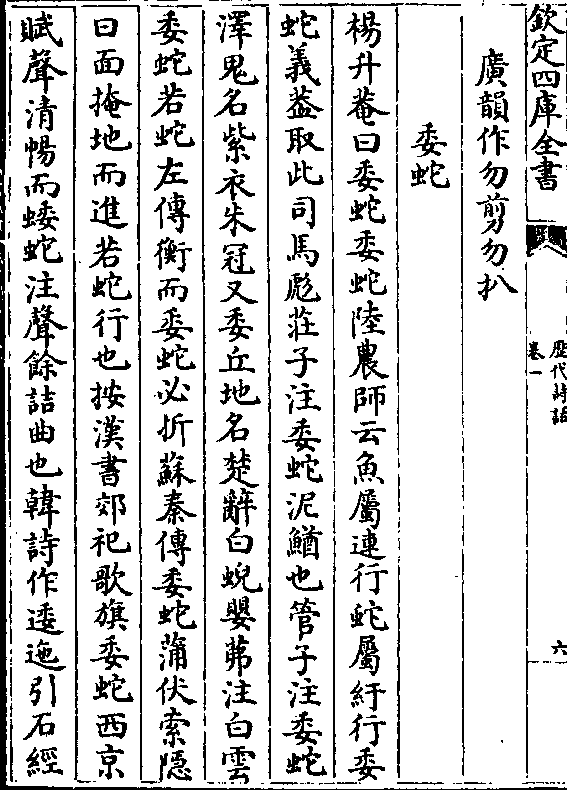 欽定四庫全書
歴代詩話
卷一
六
廣韻作勿剪勿扒
委蛇
楊升菴曰委蛇委蛇陸農師云魚屬連行蛇屬紆行委
蛇義葢取此司馬彪莊子注委蛇泥鰌也管子注委蛇
澤鬼名紫衣朱冠又委丘地名楚辭白蜺嬰茀注白雲
委蛇若蛇左傳衡而委蛇必折蘇秦傳委蛇蒲伏索隠
曰面掩地而進若蛇行也按漢書郊祀歌旗委蛇西京
賦聲清暢而蜲蛇注聲餘詰曲也韓詩作逶迤引石經